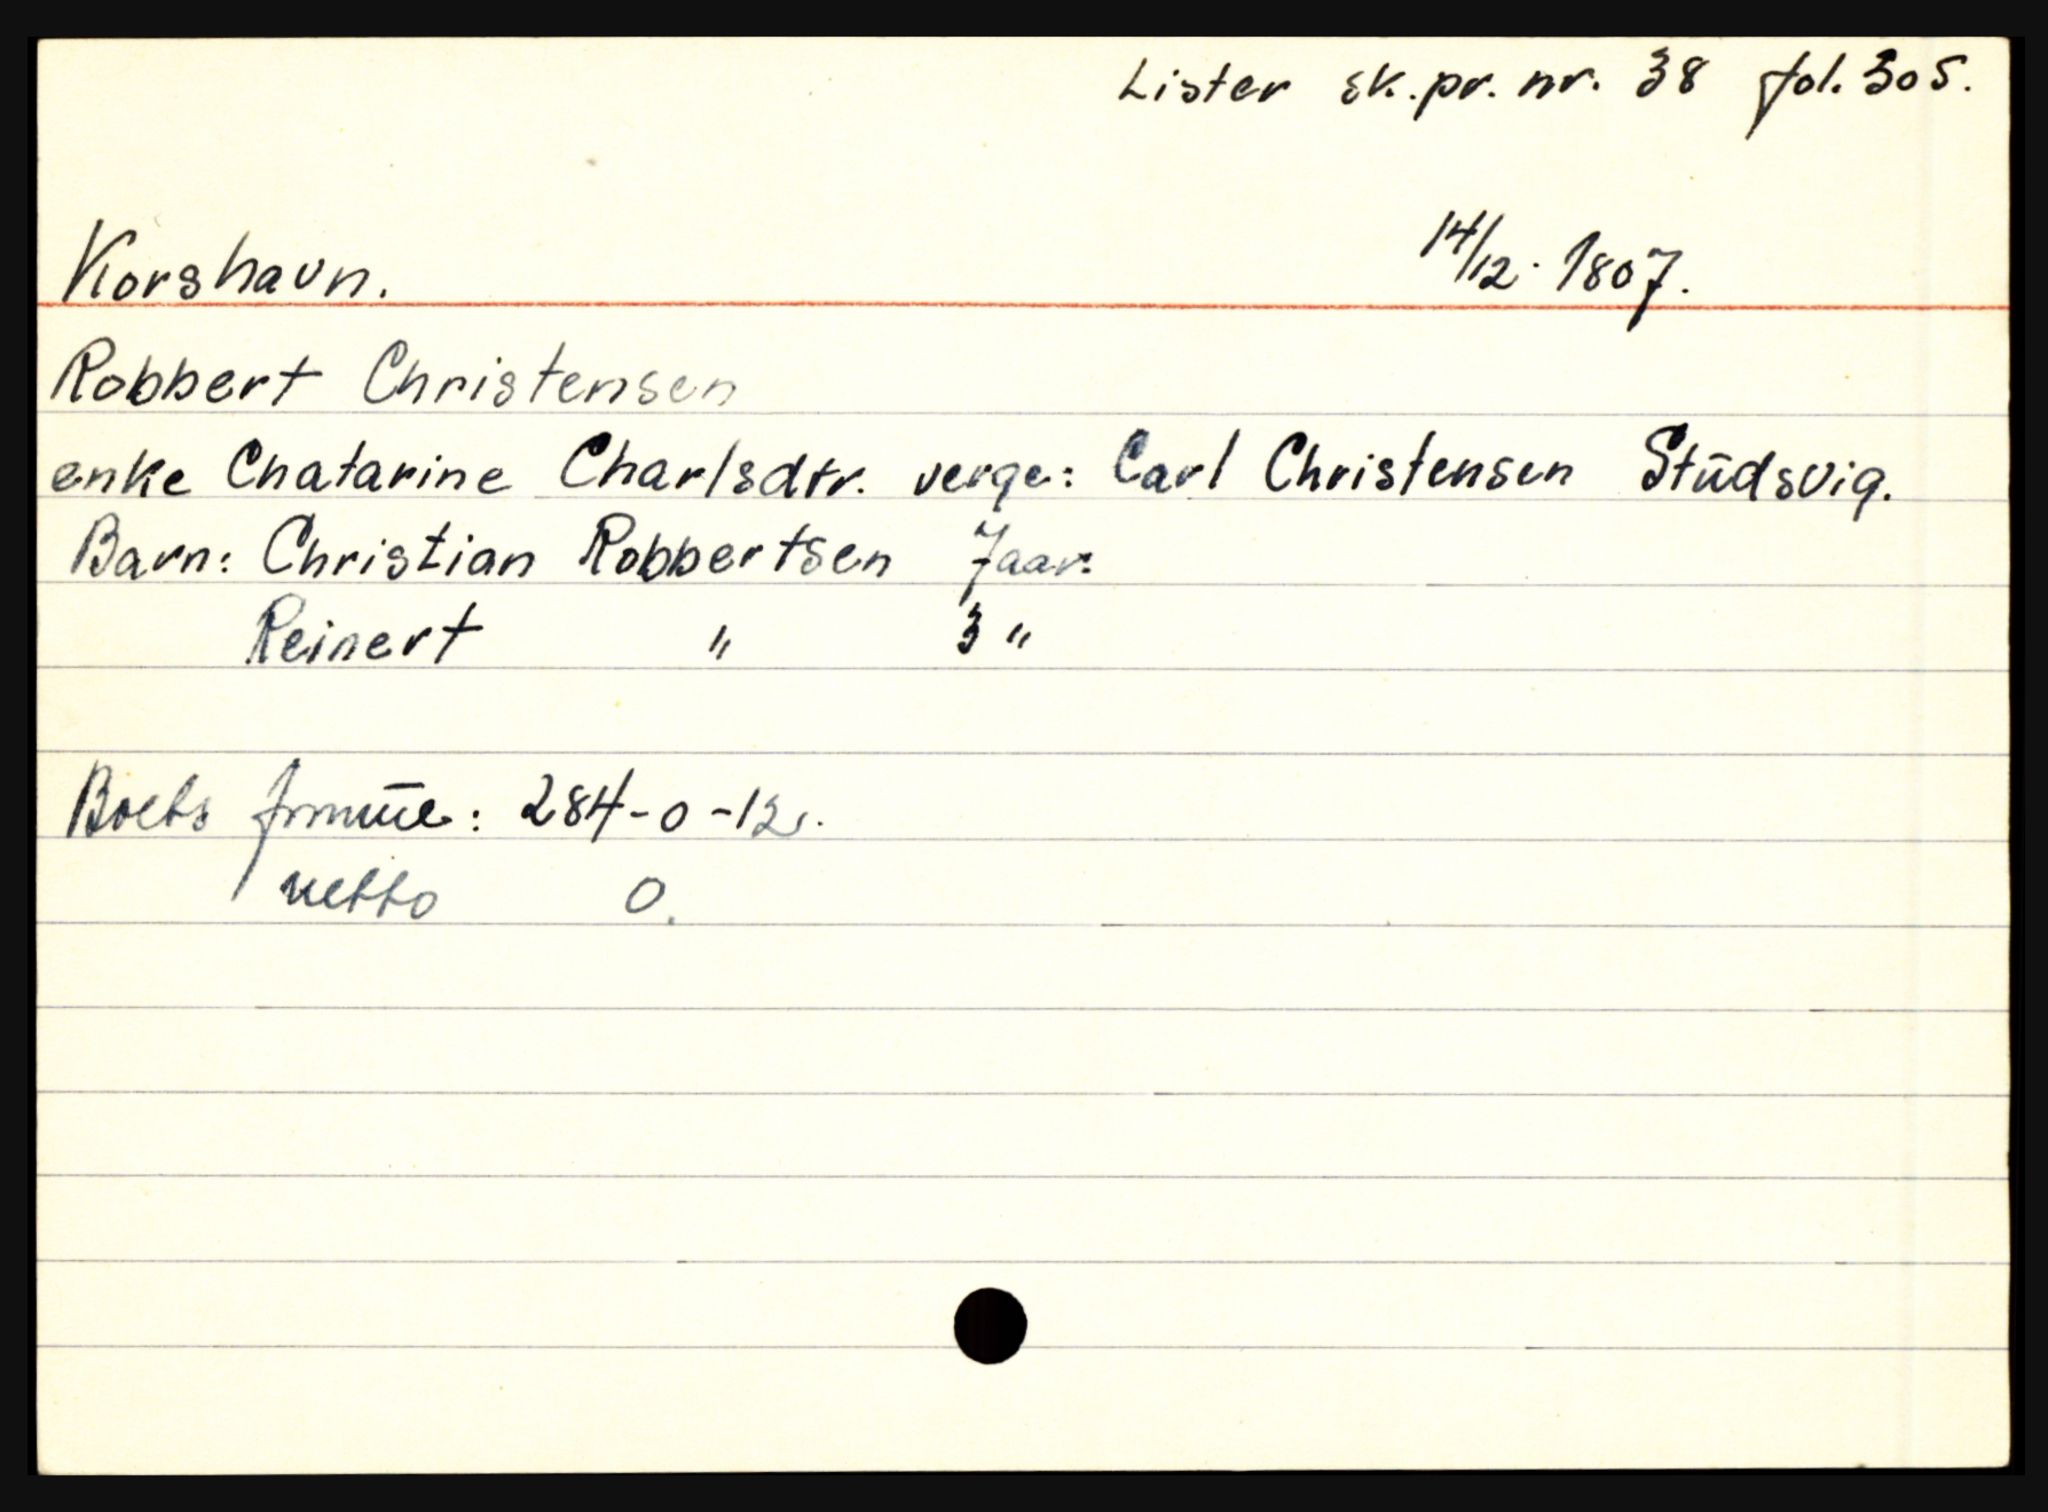 Lister sk.pr. nr. 38 fol. 305.
Korshavn. 14/12. 1807.
Robbert Christensen
enke Chatarine Charlsdtr. verge: Carl Christensen Stŭdsvig.
Barn: Christian Robbertsen 7 aar.
Reinert " 3 "
Boets : 284-0-12.
netto 0.